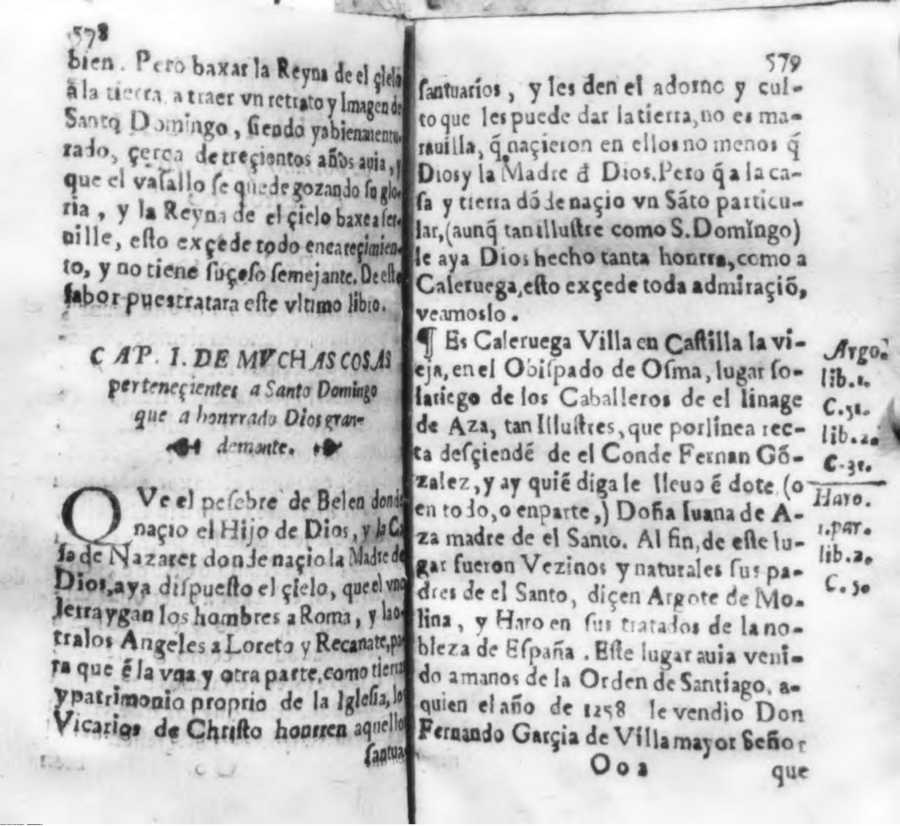 578
bien. Pero baxar la Reyna de el çielo
à la tierra a traer vn retrato y Imagen de
Santo Domingo, siendo yabienauentu-
rado, çerca de treçientos años auia, y
que el vasallo se quede gozando su glo-
ria, y la Reyna de el çielo baxe a ser-
uille, esto exçede todo encareçimien-
to, y no tiene suçeso semejante. De este
sabor puestratara este vltimo libro.
CAP. I. DE MVCHAS COSAS
perteneçientes a Santo Domingo
que a honrrado Dios gran-
demente.
QVe el pesebre de Belen donde
naçio el Hijo de Dios, y la Ca
sa de Nazaret donde naçio la Madre de
Dios, aya dispuesto el çielo, que el vno
letraygan los hombres a Roma, y la o-
tralos Angeles a Loreto y Recanate, pa-
ra que ē la vna y otra parte, como tierra
y patrimonio proprio de la Iglesia, lo
Vicarios de Christo honrren aquello
santua-
579
santuarios, y les den el adorno y cul-
to que les puede dar la tierra, no es ma-
rauilla, q̄ naçieron en ellos no menos q̄
Dios y la Madre đ Dios. Pero q̄ a la ca-
sa y tierra dōde naçio vn Sāto particu-
lar, (aunq̄ tan illustre como S. Domingo)
le aya Dios hecho tanta honrra, como a
Caleruega, esto exçede toda admiraçiō,
veamoslo.
¶ Es Caleruega Villa en Castilla la vi-
eja, en el Obispado de Osma, lugar so-
lariego de los Caballeros de el linage
de Aza, tan Illustres, que por linea rec-
ta desçiendē de el Conde Fernan Gō-
zalez, y ay quiē diga le lleuo ē dote (o
en todo, o en parte,) Doña Iuana de A-
za madre de el Santo. Al fin, de este lu-
gar fueron Vezinos y naturales sus pa-
dres de el Santo, diçen Argote de Mo-
lina, y Haro en sus tratados de la no-
bleza de España. Este lugar auia veni-
do a manos de la Orden de Santiago, a-
quien el año de 1258 le vendio Don
Fernando Garçia de Villamayor Señor
Ooa
que
Argo.
lib.1.
C.31.
lib.2.
C.31.
Haro.
1.par.
lib.2.
C.30